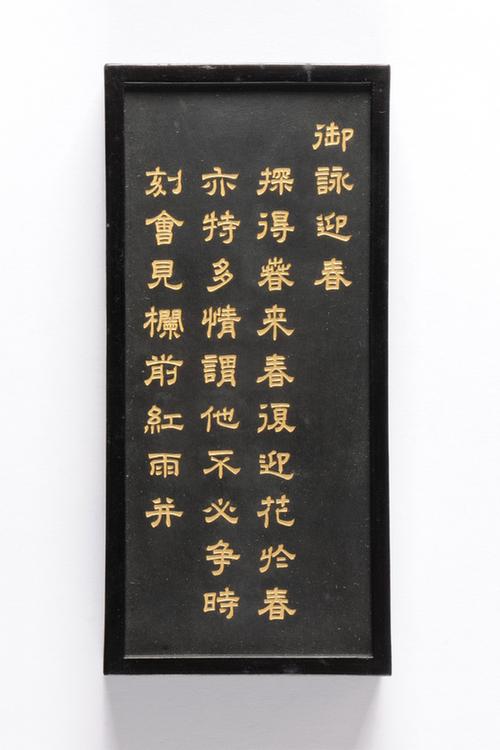 御詠迎春
探得萅来春復迎花於春
亦特多情謂他不必争時
刻會見欄前紅雨并